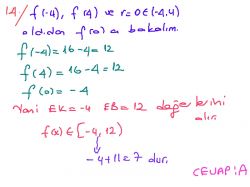 14./ f(-4), f(4) ve r=0∈(-4,4)
oldıdan f(0) a bakalım.
f(-4)=16-4=12
f(4)=16-4=12
f(0)=-4
Yani EK=-4 EB=12 değerlerini
alır.
f(x)∈[-4,12)
-4+11=7 dur.
CEVAP:A